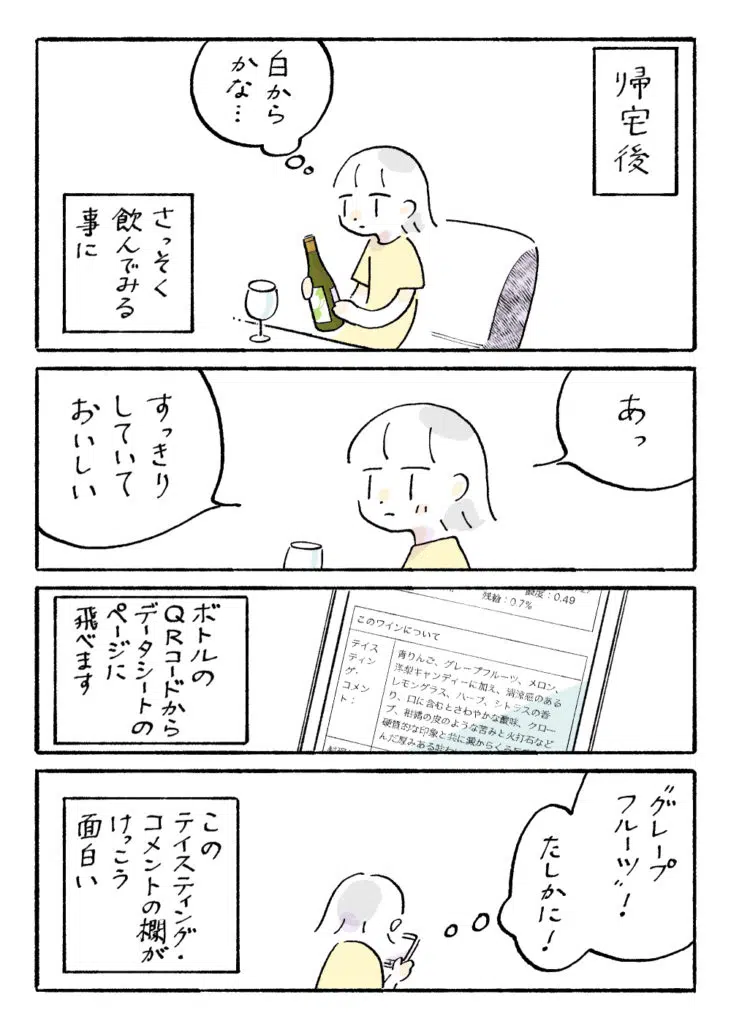 帰宅後
白から
かな…
さっそく
飲んでみる
事に
あっ
すっきり
していて
おいしい
ボトルの
QRコードから
データシートの
ページに
飛べます
酸度:0.49
残糖:0.7%
このワインについて
テイス
ティン
グ・
コメン
ト:
青りんご、グレープフルーツ、メロン、
洋梨キャンディーに加え、清涼感のある
レモングラス、ハーブ、シトラスの香
り、口に含むとさわやかな酸味、クロー
ブ、柑橘の皮のような苦みと火打石など
硬質的な印象と共に
んだ厚みある味わ
"グレープ
フルーツ"!
たしかに!
この
テイスティング・
コメントの欄が
けっこう
面白い